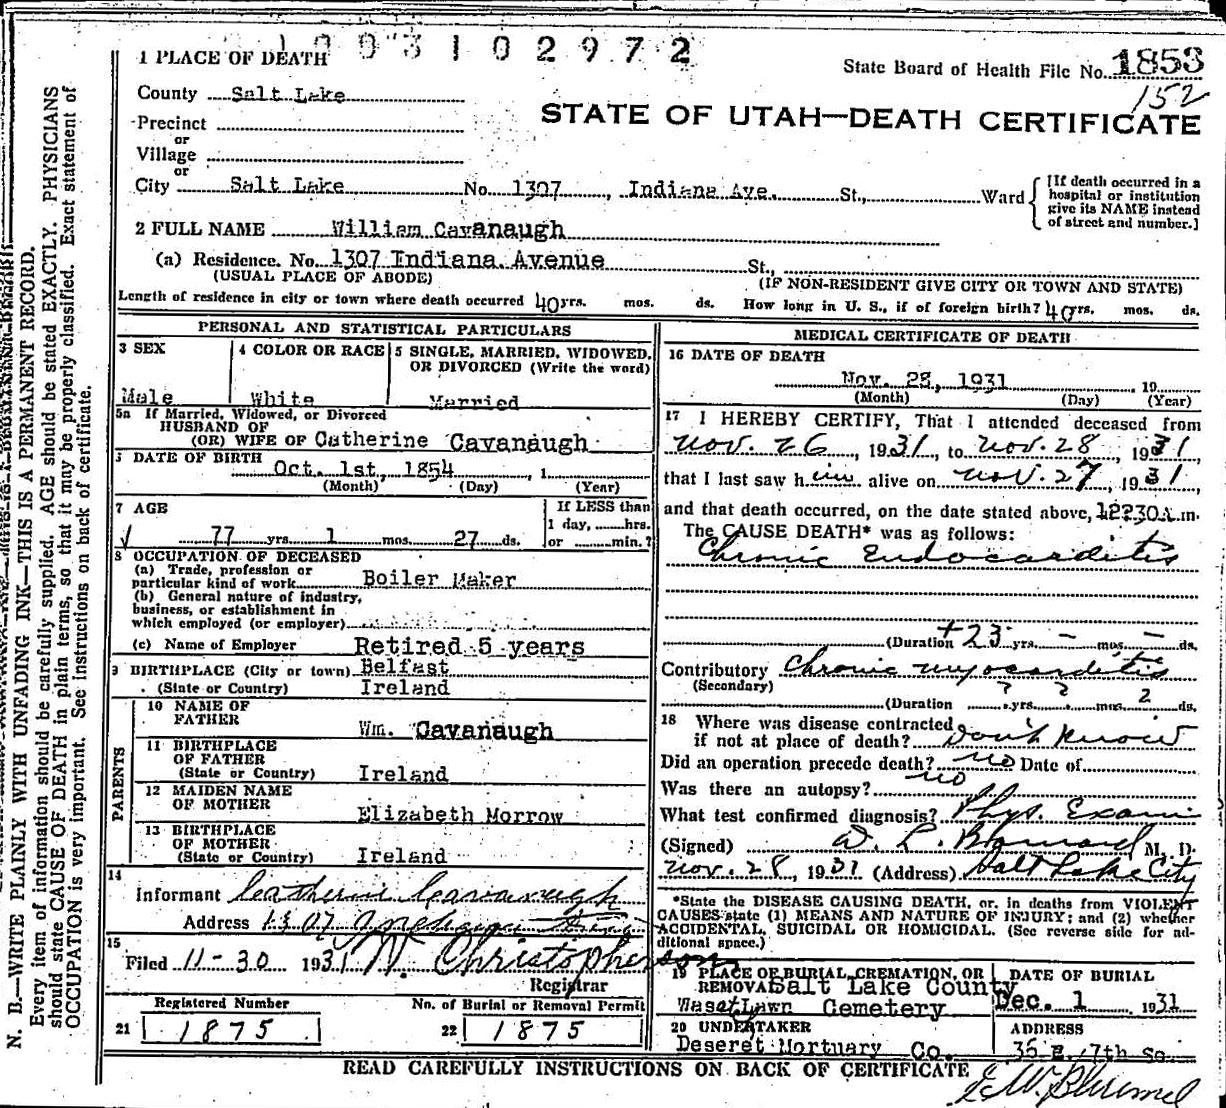 1003102972
1 PLACE OF DEATH
State Board of Health File No. 1853
152
County Salt Lake
STATE OF UTAH—DEATH CERTIFICATE
Precinct
or
Village
or
City Salt Lake No. 1307, Indiana Ave. St., Ward
[If death occurred in a hospital or institution give its NAME instead of street and number.]
2 FULL NAME William Cavanaugh
(a) Residence. No. 1307 Indiana Avenue St.,
(USUAL PLACE OF ABODE) (IF NON-RESIDENT GIVE CITY OR TOWN AND STATE)
Length of residence in city or town where death occurred 40 yrs. mos. ds. How long in U. S., if of foreign birth? 40 yrs. mos. ds.
PERSONAL AND STATISTICAL PARTICULARS
3 SEX
Male
4 COLOR OR RACE
White
5 SINGLE, MARRIED, WIDOWED,
OR DIVORCED (Write the word)
Married
5a If Married, Widowed, or Divorced
HUSBAND OF
(OR) WIFE OF Catherine Cavanaugh
DATE OF BIRTH
Oct. 1st, 1854, 1
(Month) (Day) (Year)
7 AGE
77 yrs. 1 mos. 27 ds.
If LESS than
1 day, hrs.
or min.?
8 OCCUPATION OF DECEASED
(a) Trade, profession or
particular kind of work Boiler Maker
(b) General nature of industry,
business, or establishment in
which employed (or employer)
(c) Name of Employer Retired 5 years
9 BIRTHPLACE (City or town) Belfast
(State or Country) Ireland
PARENTS
10 NAME OF
FATHER Wm. Cavanaugh
11 BIRTHPLACE
OF FATHER
(State or Country) Ireland
12 MAIDEN NAME
OF MOTHER Elizabeth Morrow
13 BIRTHPLACE
OF MOTHER
(State or Country) Ireland
14
Informant Catherine Cavanaugh
Address 1307 Indiana
15
Filed 11-30 1931 N. Christopherson
Registrar
Registered Number No. of Burial or Removal Permit
21 1875 22 1875
MEDICAL CERTIFICATE OF DEATH
16 DATE OF DEATH
Nov. 28, 1931 19
(Month) (Day) (Year)
17 I HEREBY CERTIFY, That I attended deceased from
Nov. 26, 1931, to Nov. 28, 1931,
that I last saw him alive on Nov. 27, 1931,
and that death occurred, on the date stated above, 12:30 A.m.
The CAUSE DEATH* was as follows:
Chronic Endocarditis
(Duration +23 yrs. – mos. – ds.
Contributory Chronic myocarditis
(Secondary)
(Duration ? yrs. ? mos. ? ds.
18 Where was disease contracted
if not at place of death? Don't Know
Did an operation precede death? no Date of
Was there an autopsy? no
What test confirmed diagnosis? Phys. Exam
(Signed) D. L. M. D.
Nov. 28, 1931 (Address) Salt Lake City
*State the DISEASE CAUSING DEATH, or, in deaths from VIOLENT
CAUSES state (1) MEANS AND NATURE OF INJURY; and (2) whether
ACCIDENTAL, SUICIDAL OR HOMICIDAL. (See reverse side for ad-
ditional space.)
19 PLACE OF BURIAL, CREMATION, OR
REMOVAL Salt Lake County
Wasat Lawn Cemetery
DATE OF BURIAL
Dec. 1 1931
20 UNDERTAKER
Deseret Mortuary Co.
ADDRESS
36 E. 7th So.
READ CAREFULLY INSTRUCTIONS ON BACK OF CERTIFICATE
N. B.—WRITE PLAINLY WITH UNFADING INK—THIS IS A PERMANENT RECORD.
Every item of information should be carefully supplied. AGE should be stated EXACTLY. PHYSICIANS
should state CAUSE OF DEATH in plain terms, so that it may be properly classified. Exact statement of
OCCUPATION is very important. See instructions on back of certificate.